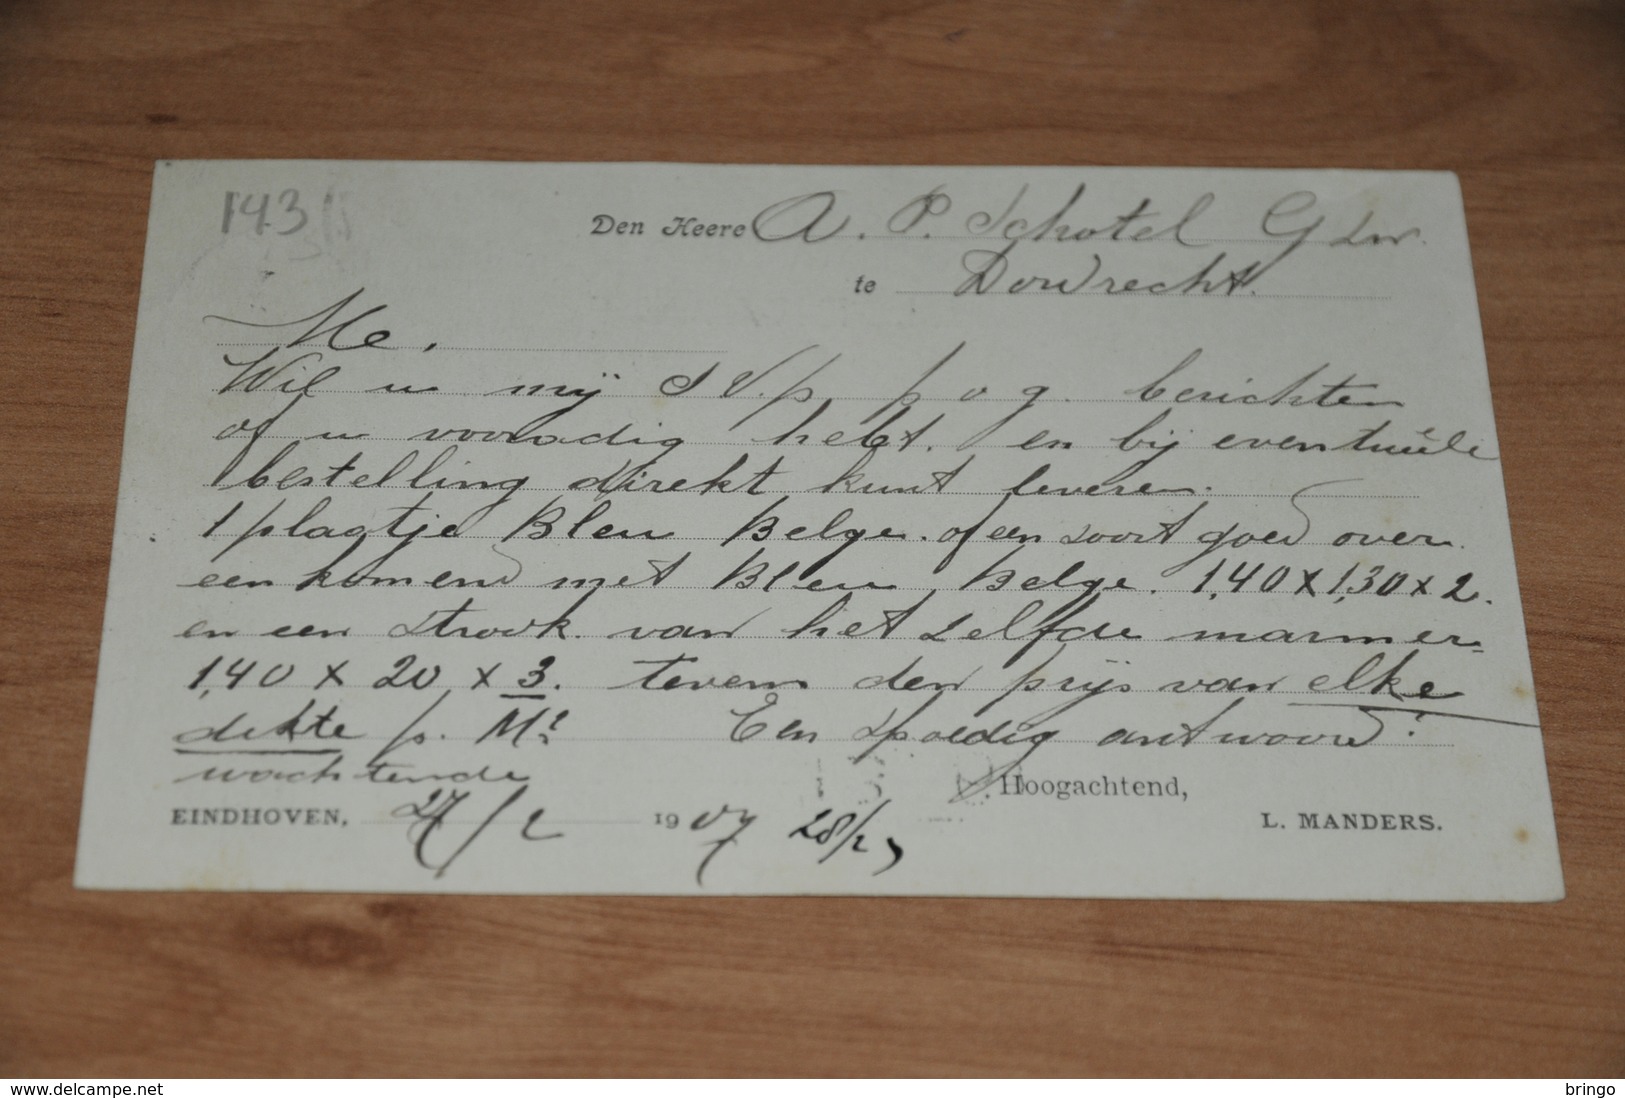 143
Den Heere A. P. Schotel Gzn.
te Dordrecht.
Me.
Wil u mij S V.p. p o g. berichten
of u voorradig hebt. en bij eventuële
bestelling direkt kunt leveren.
1 plaatje Bleu Belge. of een soort goed over
een komend met Bleu Belge. 1,40 x 1,30 x 2.
en een strook van het zelfde marmer
1,40 x 20 x 3. tevens den prijs van elke
dikte p. M2 Een spoedig antwoord
wachtende
Hoogachtend,
EINDHOVEN, 27/2 1907 28/2 L. MANDERS.
www.delcampe.net
bringo